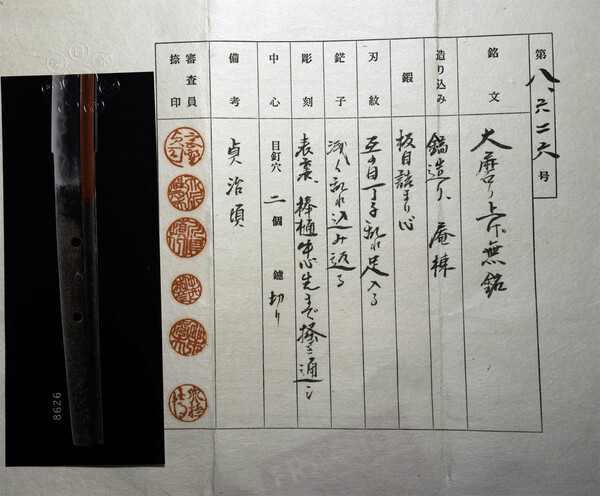 第八、六二六号
銘文 大磨り上げ無銘
造り込み 鎬造り、庵棟
鍛 板目詰まり心
刃紋 互の目丁子乱れ足入る
鋩子 浅く乱れ込み返る
彫刻 表裏、棒樋中心先まで掻き通し
中心 目釘穴 二個 鑢 切り
備考 貞治頃
審査員捺印
8626